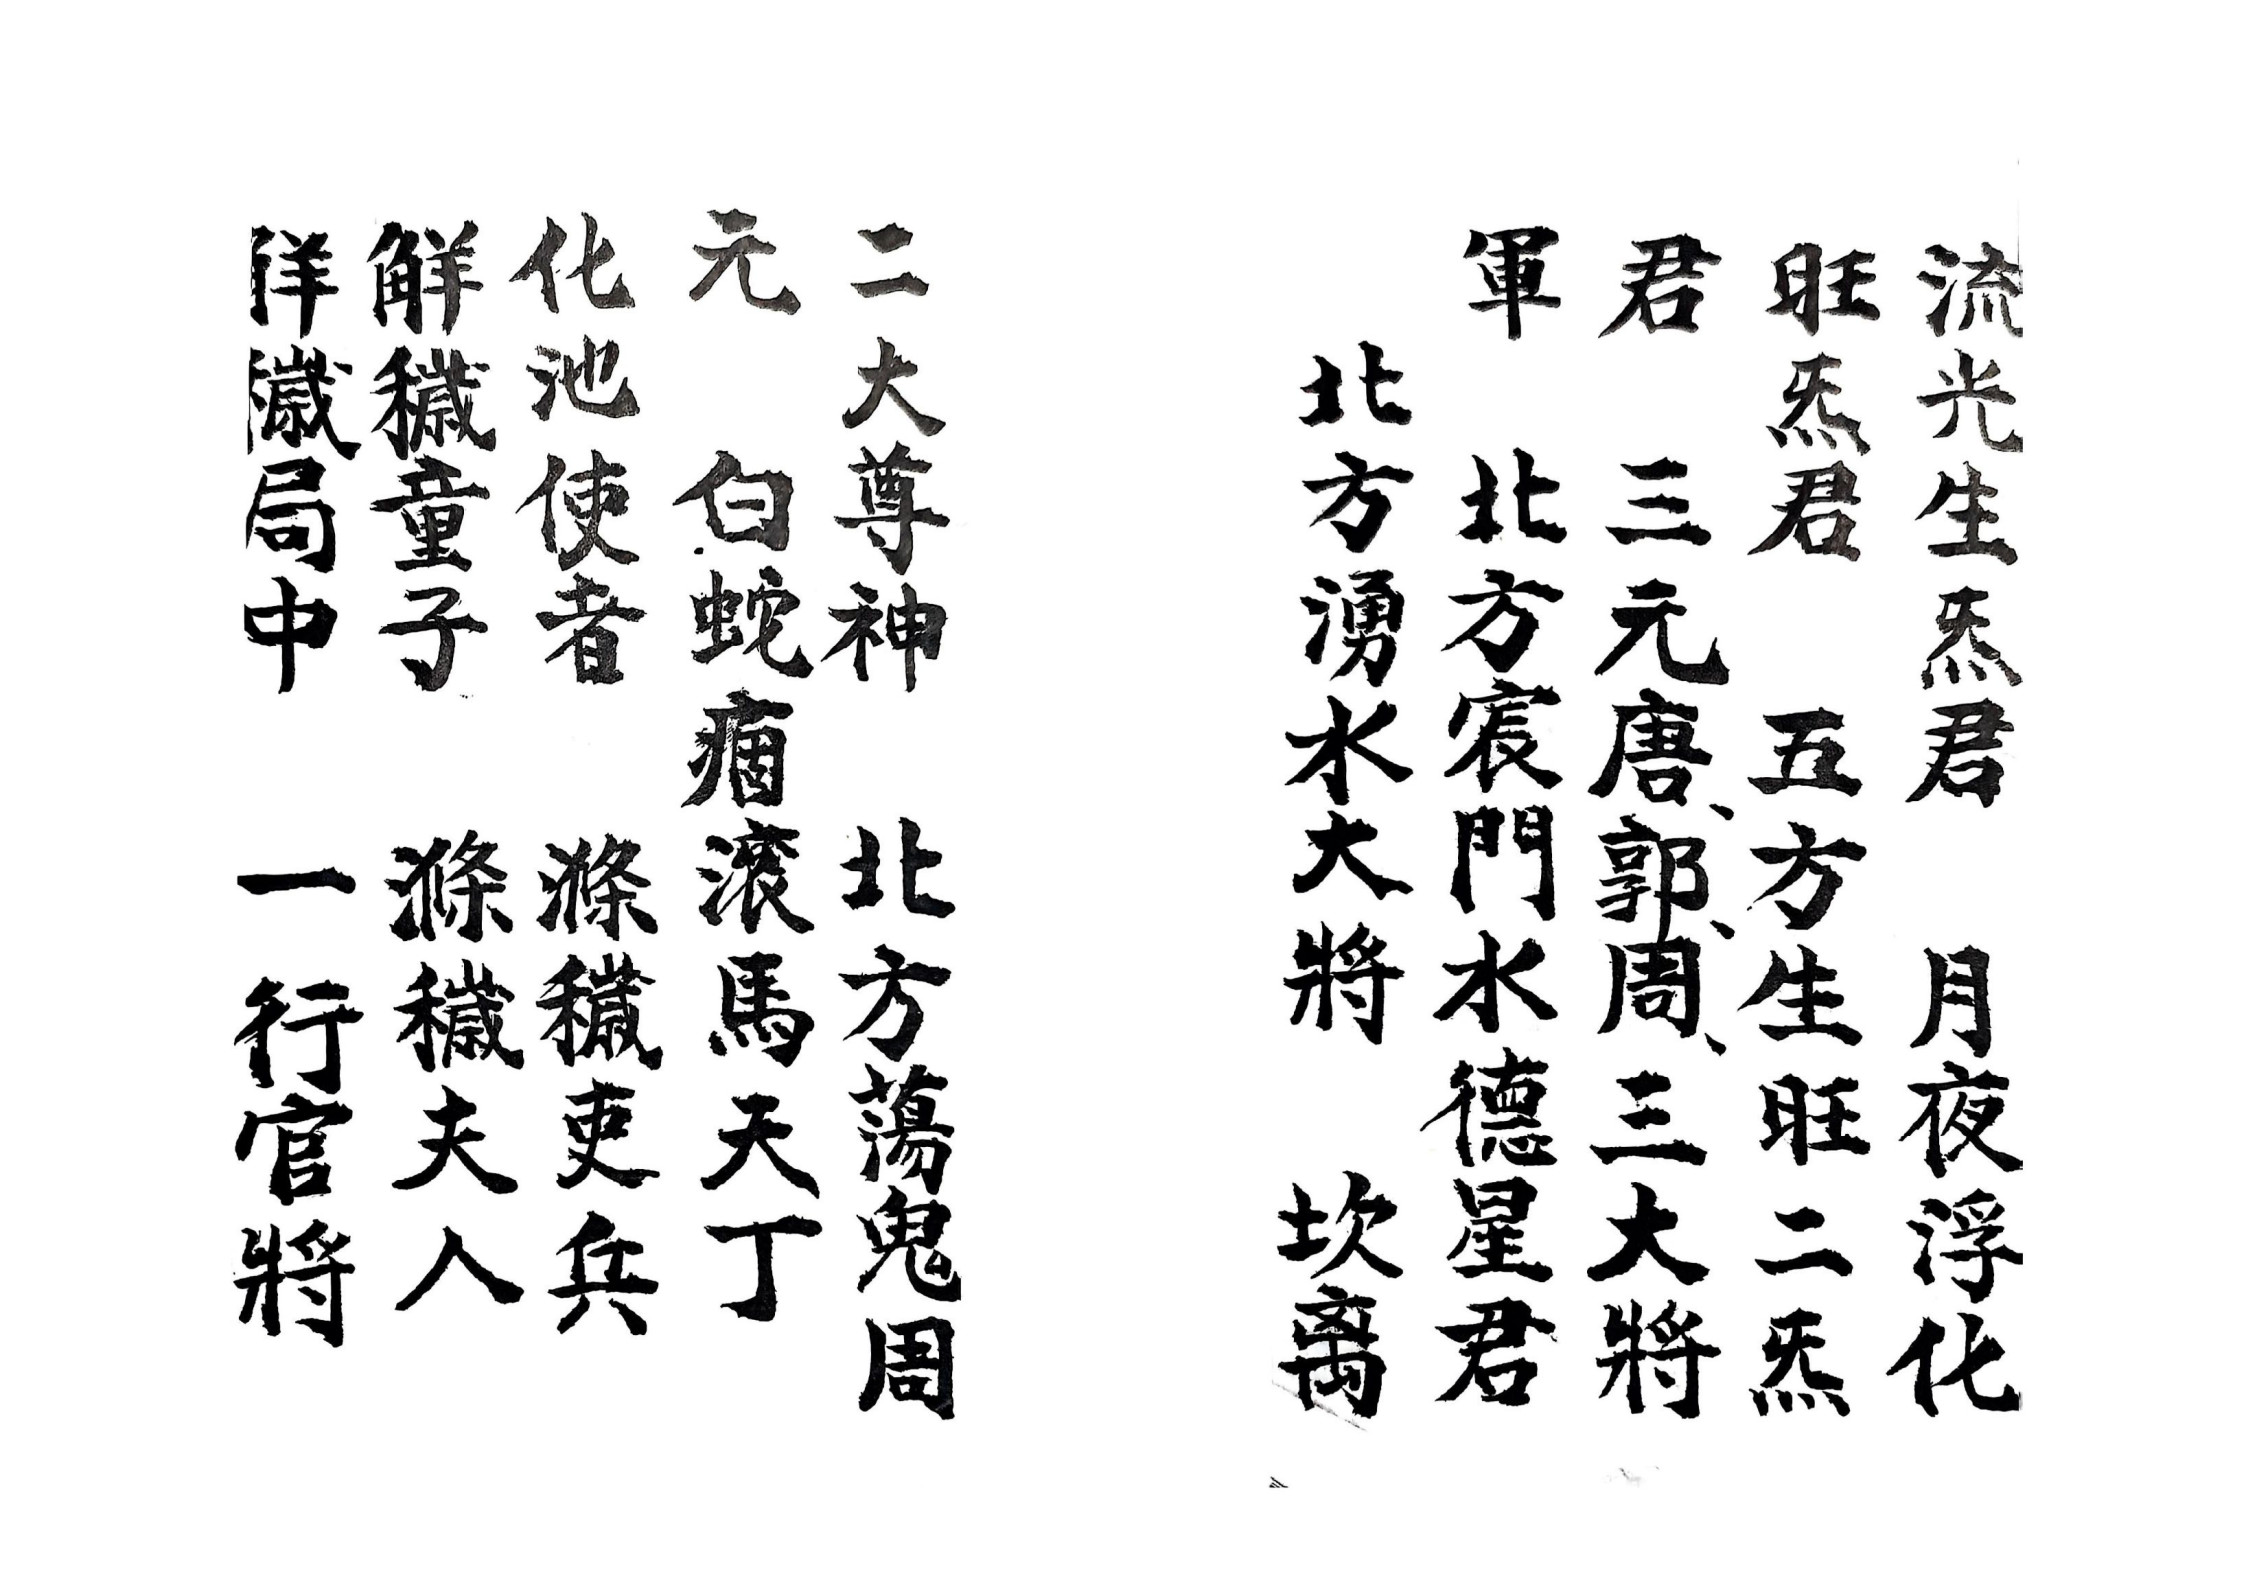 流光生炁君　月夜浮化
旺炁君　五方生旺二炁
君　三元唐、郭、周、三大將
軍　北方宸門水德星君
北方湧水大將　坎离
二大尊神　北方蕩鬼周
元　白蛇痼滚馬天丁
化池使者　滌穢吏兵
觧穢童子　滌穢夫人
局中　一行官將